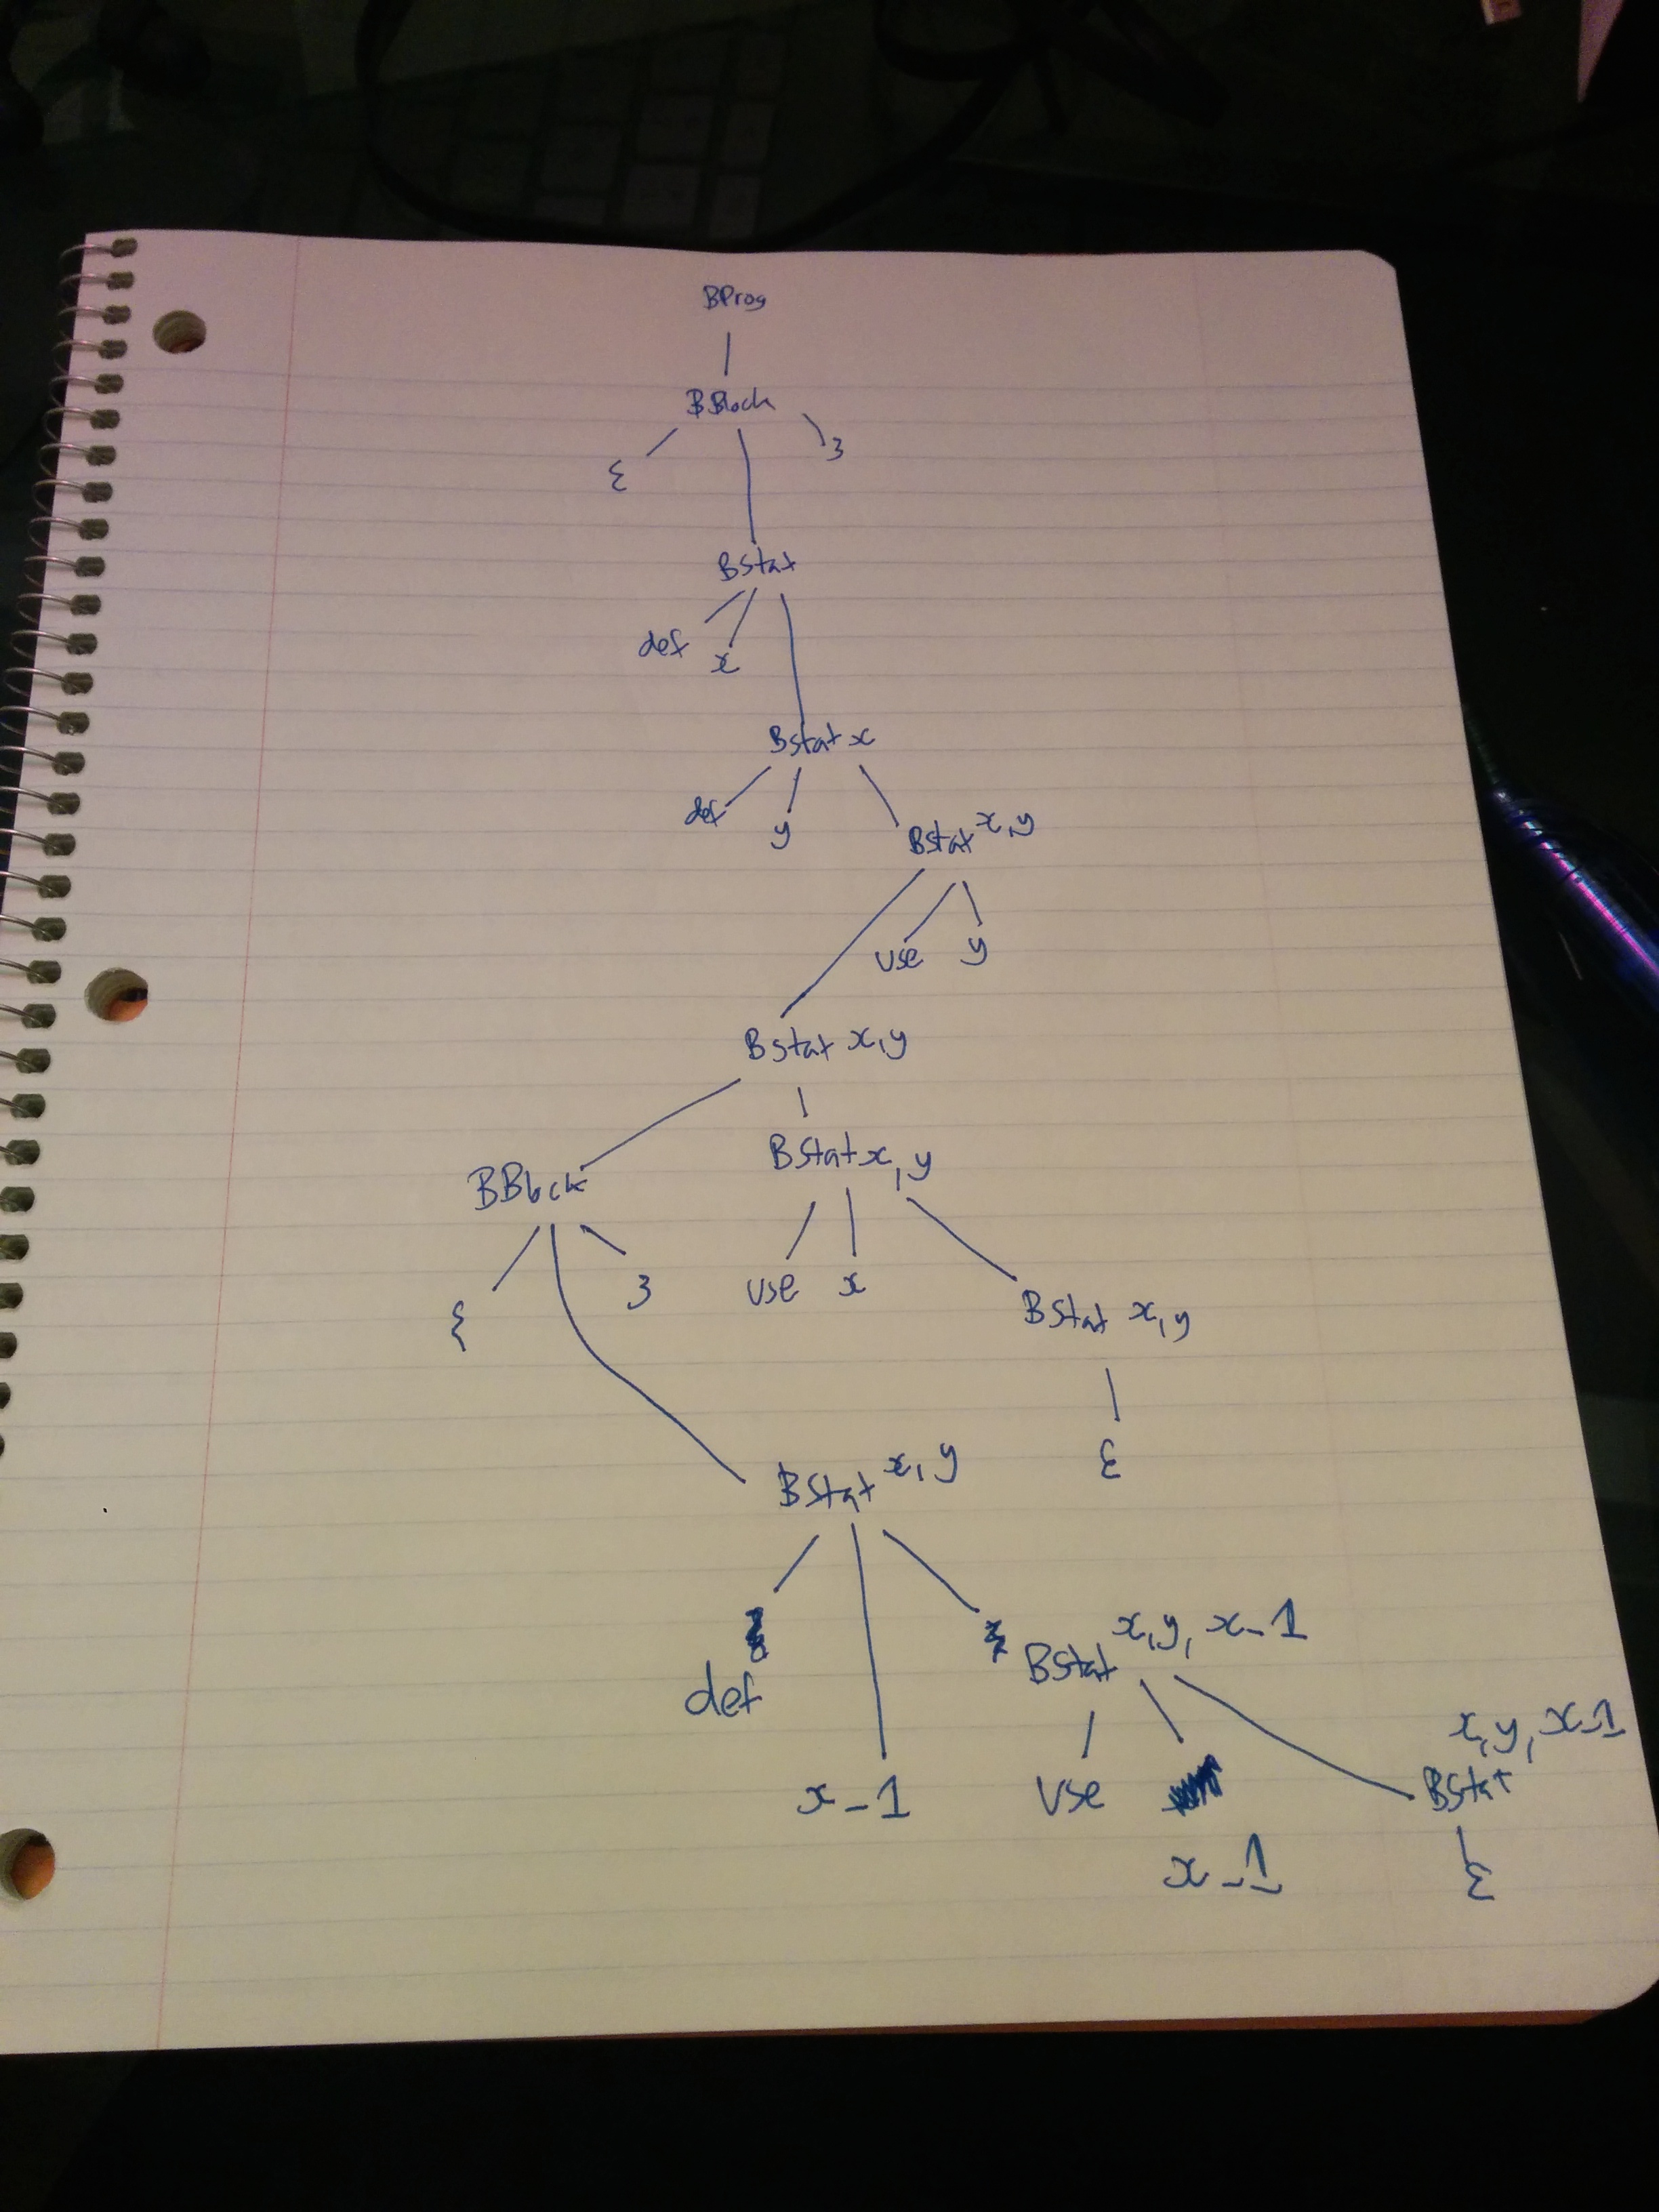 BProg
BBlock
{ }
BStat
def x
Bstat x
def y Bstat x,y
use y
Bstat x,y
BBlock BStat x,y
{ } use x BStat x,y
ε
BStat x,y
def x_1 BStat x,y,x_1
use x_1 BStat x,y,x_1
ε